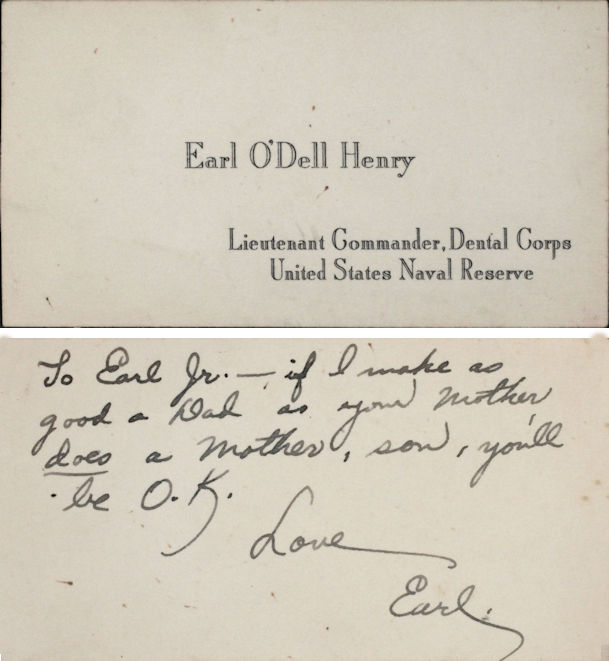 Earl O'Dell Henry
Lieutenant Commander, Dental Corps
United States Naval Reserve
To Earl Jr. — if I make as
good a Dad as your Mother
does a Mother, son, you'll
be O.K.
Love
Earl.